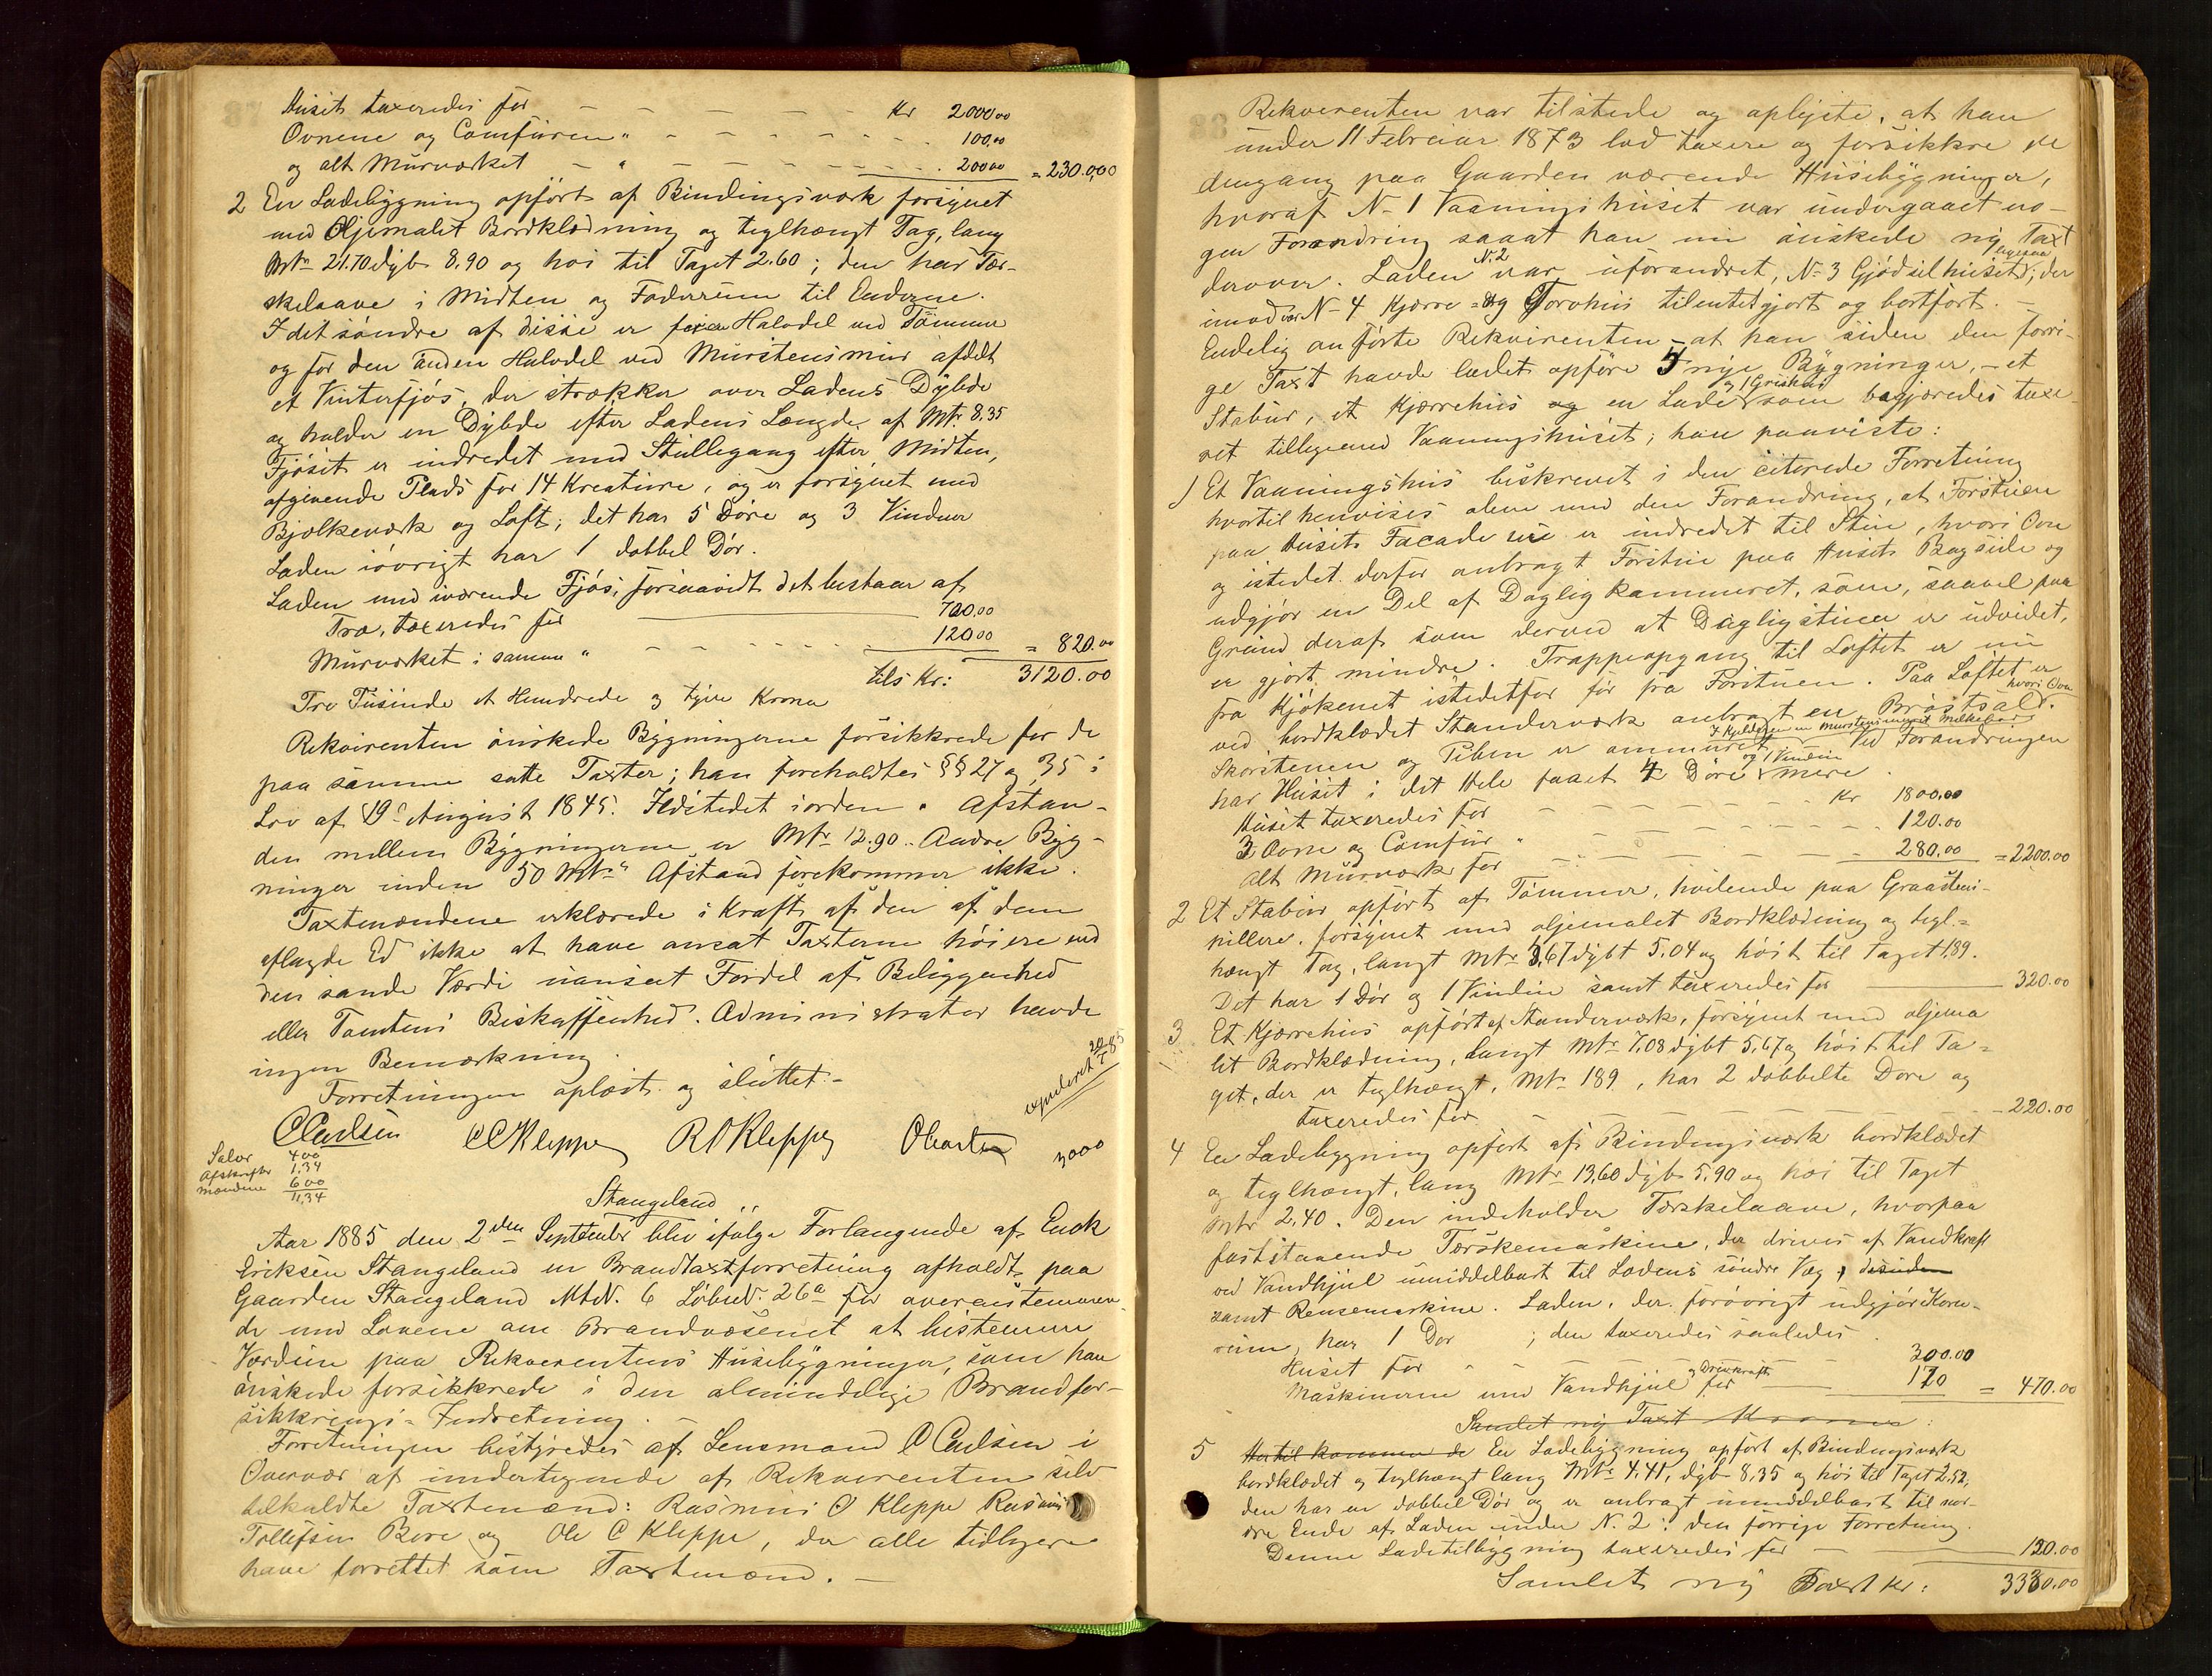 Huset taxeredes for - - - - - Kr 2000.00
Ovnene og Comfuren " - - - - - 100.00
og alt Murværket - " - - - - - 200.00 = 2300.00
2 En Ladebygning opført af Bindingsværk forsynet
med Oljemalet Bordklædning og teglhængt Tag, lang
Mtr 21.70 dyb 8.90 og høi til Taget 2.60; den har Tær-
skelaave i Midten og Foderrum til Enderne.
I det søndre af disse er for en Halvdel ved Tømmer
og for den anden Halvdel ved Murstensmur afdelt
et Vinterfjøs, der strækker over Ladens Dybde
og holder en Dybde efter Ladens Længde af Mtr. 8.35
Fjøset er indredet med Stillegang efter Midten,
afgivende Plads for 14 Kreature, og er forsynet med
Bjælkeværk og Loft; det har 5 Døre og 3 Vinduer
Laden iøvrigt har 1 dobbel Dør.
Laden med iværende Fjøs, forsaavidt det bestaar af
Træ, taxeredes for 700.00
Murværket i samme " - - - 120.00 = 820.00
tils Kr: 3120.00
Tre Tusinde et Hundrede og tyve Kroner
Rekvirenten ønskede Bygningerne forsikkrede for de
paa samme satte Taxter; han foreholdtes §§ 27 og 35 i
Lov af 19de August 1845. Ildstedet i orden. Afstan-
den mellem Bygningerne er Mtr 12.90. Andre Byg-
ninger inden 50 Mtr" Afstand forekommer ikke.
Taxtmændene erklærede i Kraft af den af dem
aflagde Ed ikke at have ansat Taxterne høiere end
den sande Værdi uanseet Fordel af Beliggenhed
eller Tomtens Beskaffenhed. Administrator havde
ingen Bemærkning.
Forretningen oplæst og sluttet.-
expederet 20/9 85
CCarlsen CCKleppe ROKleppe
3000
Salær 400
Afskrifter 1,34
Mændene 600
11,34
Stangeland
Aar 1885 den 2den September blev ifølge Forlangende af Enok
Eriksen Stangeland en Brandtaxtforretning afholdt paa
Gaarden Stangeland MtN. 6 LøbeN. 26a for overenstemmen-
de med Lovene om Brandvæsenet at bestemme
Værdien paa Rekvirentens Husebygninger, som han
ønskede forsikkrede i den almindelige Brandfor-
sikkrings-Indretning. -
Forretningen bestyredes af Lensmand C Carlsen i
Overvær af undertegnede af Rekvirenten selv
tilkaldte Taxtmænd: Rasmus O Kleppe Rasmus
Tollefsen Bore og Ole C Kleppe, der alle tidligere
have forrettet som Taxtmænd. -
Rekvirenten var tilstede og oplyste, at han
under 11 Februar 1873 lod taxere og forsikkre de
dengang paa Gaarden værende Husebygninger,
hvoraf N- 1 Vaaningshuset var undergaaet no-
gen Forandring saaat han nu ønskede ny Taxt
derover. Laden N.2 var uforandret, N- 3 Gjødselhuset; der
imod var N- 4 Kjærre- og Torvhus tilentetgjort og bortført. -
Endelig anførte Rekvirenten - at han siden den forri-
ge Taxt havde ladet opføre 5 nye Bygninger, - et
Stabur, et Kjærrehus og en Lade og 1 Grishus som begjæredes taxe-
ret tilligemed Vaaningshuset; han paaviste:
1 Et Vaaningshus beskrevet i den citerede Forretning
hvortil henvises alene med den Forandring, at Forstuen
paa Husets Facade er indredet til Stue, hvori Ovn
og istedet derfor anbragt Forstue paa Husets Bagside og
udgjør en Del af Dagligkammeret, som, saavel paa
Grund deraf som derved at Dagligstuen er udvidet,
er gjort mindre. Trappeopgang til Loftet er nu
fra Kjøkenet istedetfor før fra Forstuen. Paa Loftet er
ved bordklædet Standerværk anbragt en Brøstsal hvori Ovn.
Skorstenen og Piben er ommuret I Kjelderen en Murstensmuret Melkebod Ved Forandringen
har Huset i det Hele faaet 4 Døre og 1 Vindue mere.
Huset taxeredes for - - - - - Kr 1800.00
3 Ovne og Comfur " - - - - 120.00
Alt Murværk for - - - - 280.00 = 2200.00
2 Et Stabur opført af Tømmer, hvilende paa Graastens-
pillere, forsynet med oljemalet Bordklædning og tegl-
hængt Tag, langt Mtr 3,67 dybt 5.04 og høit til Taget 1,89.
Det har 1 Dør og 1 Vindue samt taxeredes for 320.00
3 Et Kjærrehus opført af Standerværk, forsynet med oljema
let Bordklædning, langt Mtr 7,08 dybt 5,67 og høit til Ta-
get, der er teglhængt, Mtr 189, har 2 dobbelte Døre og
taxeredes for - - - - 220.00
4 En Ladebygning opført af Bindingsværk bordklædet
og teglhængt, lang Mtr 13,60 dyb 5,90 og høi til Taget
Mtr 2,40. Den indeholder Tærskelaave, hvorpaa
faststaaende Tærskemaskine, der drives af Vandkraft
ved Vandhjul umiddelbart til Ladens søndre Væg, desuden
samt Rensemaskine. Laden, der forøvrigt udgjør Korn-
rum, har 1 Dør ; den taxeredes saaledes
Huset for - - - - 300.00
Maskinerne med Vandhjul og Drivkraft for - - 170 = 470.00
Samlet ny Taxt Kroner:
5 Hertil kommer de En Ladebygning opført af Bindingsværk
bordklædet og teglhængt lang Mtr 4,41, dyb 8,35 og høi til Taget 2,52,
den har en dobbel Dør og er anbragt umiddelbart til nor-
dre Ende af Laden under N. 2 i den forrige Forretning.
Denne Ladetilbygning taxeredes for - 120.00
Samlet ny Taxt Kr: 3330.00